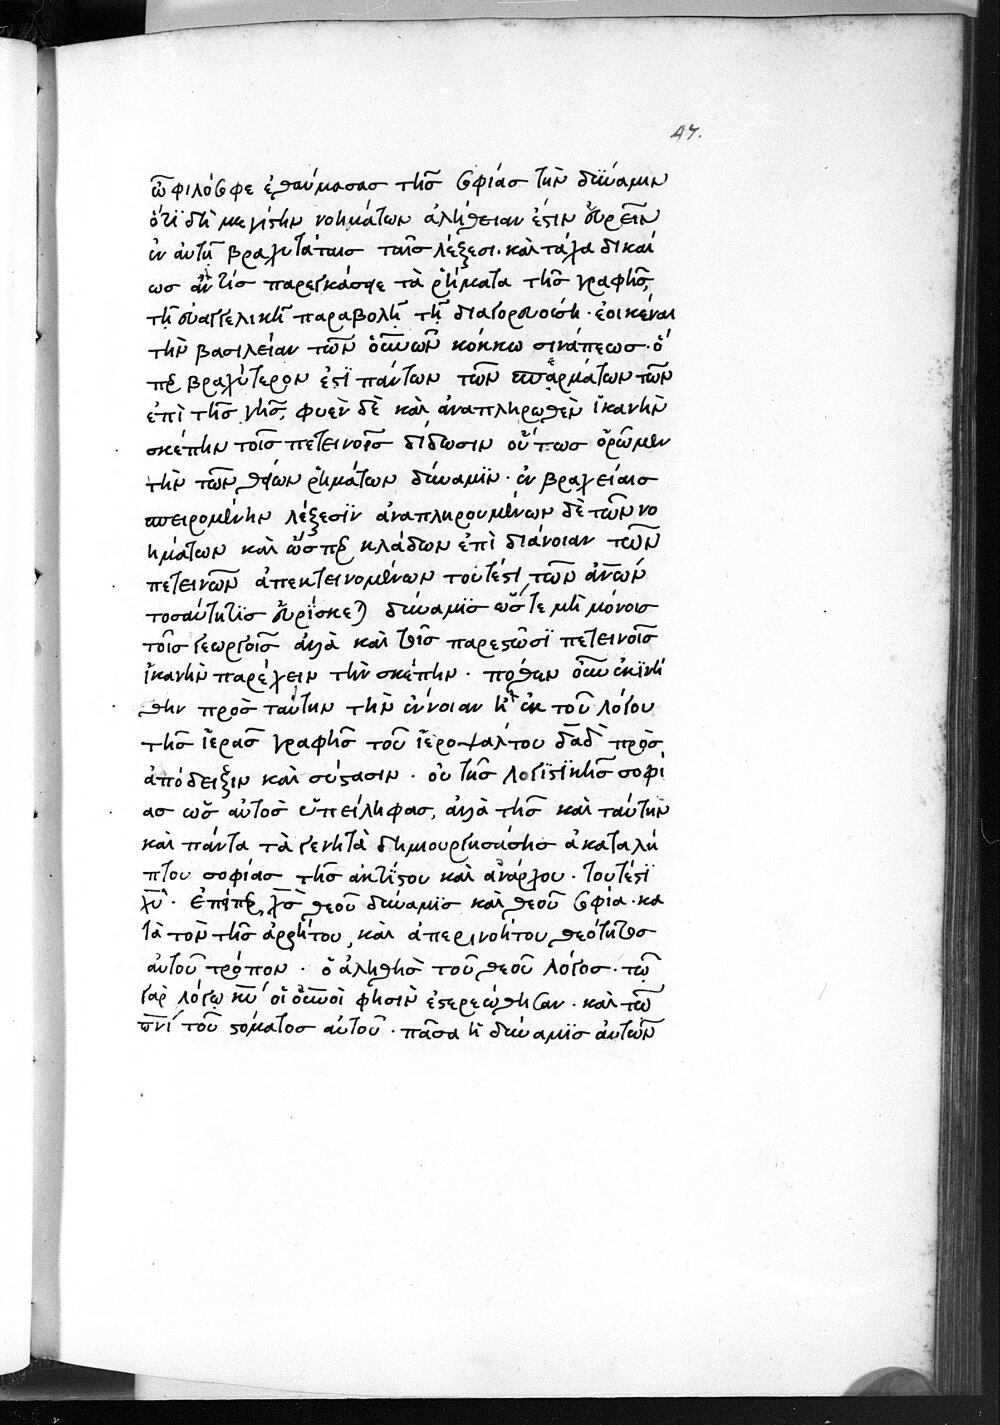 47.
ὦ φιλόσοφε ἐθαύμασας τῆς σοφίας τὴν δύναμιν
ὅτι δὴ μεγίστην νοημάτων ἀλήθειαν ἔστιν εὑρεῖν
ἐν αὐτῇ βραχυτάταις ταῖς λέξεσι. καὶ τάχα δικαί
ως ἄν τις παρεικάσῃε τὰ ῥήματα τῆς γραφῆς,
τῇ εὐαγγελικῇ παραβολῇ τῇ διαγορευούσῃ · ἐοικέναι
τὴν βασιλείαν τῶν οὐνῶν κόκκω σινάπεως · ὅ
περ βραχύτερον ἐστὶ πάντων τῶν σπερμάτων τῶν
ἐπὶ τῆς γῆς, φυὲν δὲ καὶ ἀναπληρωθὲν ἱκανὴν
σκέπην τοῖς πετεινοῖς δίδωσιν οὕτως ὁρῶμεν
τὴν τῶν θείων ῥημάτων δύναμιν · ἐν βραχείαις
σπειρομένην λέξεσιν ἀναπληρουμένων δὲ τῶν νο
ημάτων καὶ ὥσπερ κλάδων ἐπὶ διάνοιαν τῶν
πετεινῶν ἀπεκτεινομένων τουτέστι, τῶν ἀνῶν
τοσαύτη τις εὑρίσκεται δύναμις ὥστε μὴ μόνοις
τοῖς γεωργοῖς ἀλλὰ καὶ τοῖς παρεστῶσι πετεινοῖς
ἱκανὴν παρέχειν τὴν σκέπην · πόθεν οὖν ἐκινή
θην πρὸς ταύτην τὴν ἔννοιαν ἢ ἐκ τοῦ λόγου
τῆς ἱερᾶς γραφῆς τοῦ ἱεροψάλτου δᾱδ̄ πρὸς
ἀπόδειξιν καὶ σύστασιν · οὐ τῆς λογιστικῆς σοφί
ας ὡς αὐτὸς ὑπείληφας, ἀλλὰ τῆς καὶ ταύτην
καὶ πάντα τὰ γενητὰ δημιουργησάσης ἀκαταλή
πτου σοφίας τῆς ἀκτίστου καὶ ἀνάρχου · τουτέστι
χῡ · ἐπείπερ χ̄ς̄ θεοῦ δύναμις καὶ θεοῦ σοφία · κα
τὰ τὸν τῆς ἀρρήτου, καὶ ἀπερινοήτου θεότητος
αὐτοῦ τρόπον · ὁ ἀληθὴς τοῦ θεοῦ λόγος · τῷ
γὰρ λόγῳ κ̄ῡ οἱ οὐνοὶ φησὶν ἐστερεώθησαν · καὶ τῷ
π̄ν̄ι τοῦ στόματος αὐτοῦ · πᾶσα ἡ δύναμις αὐτῶν